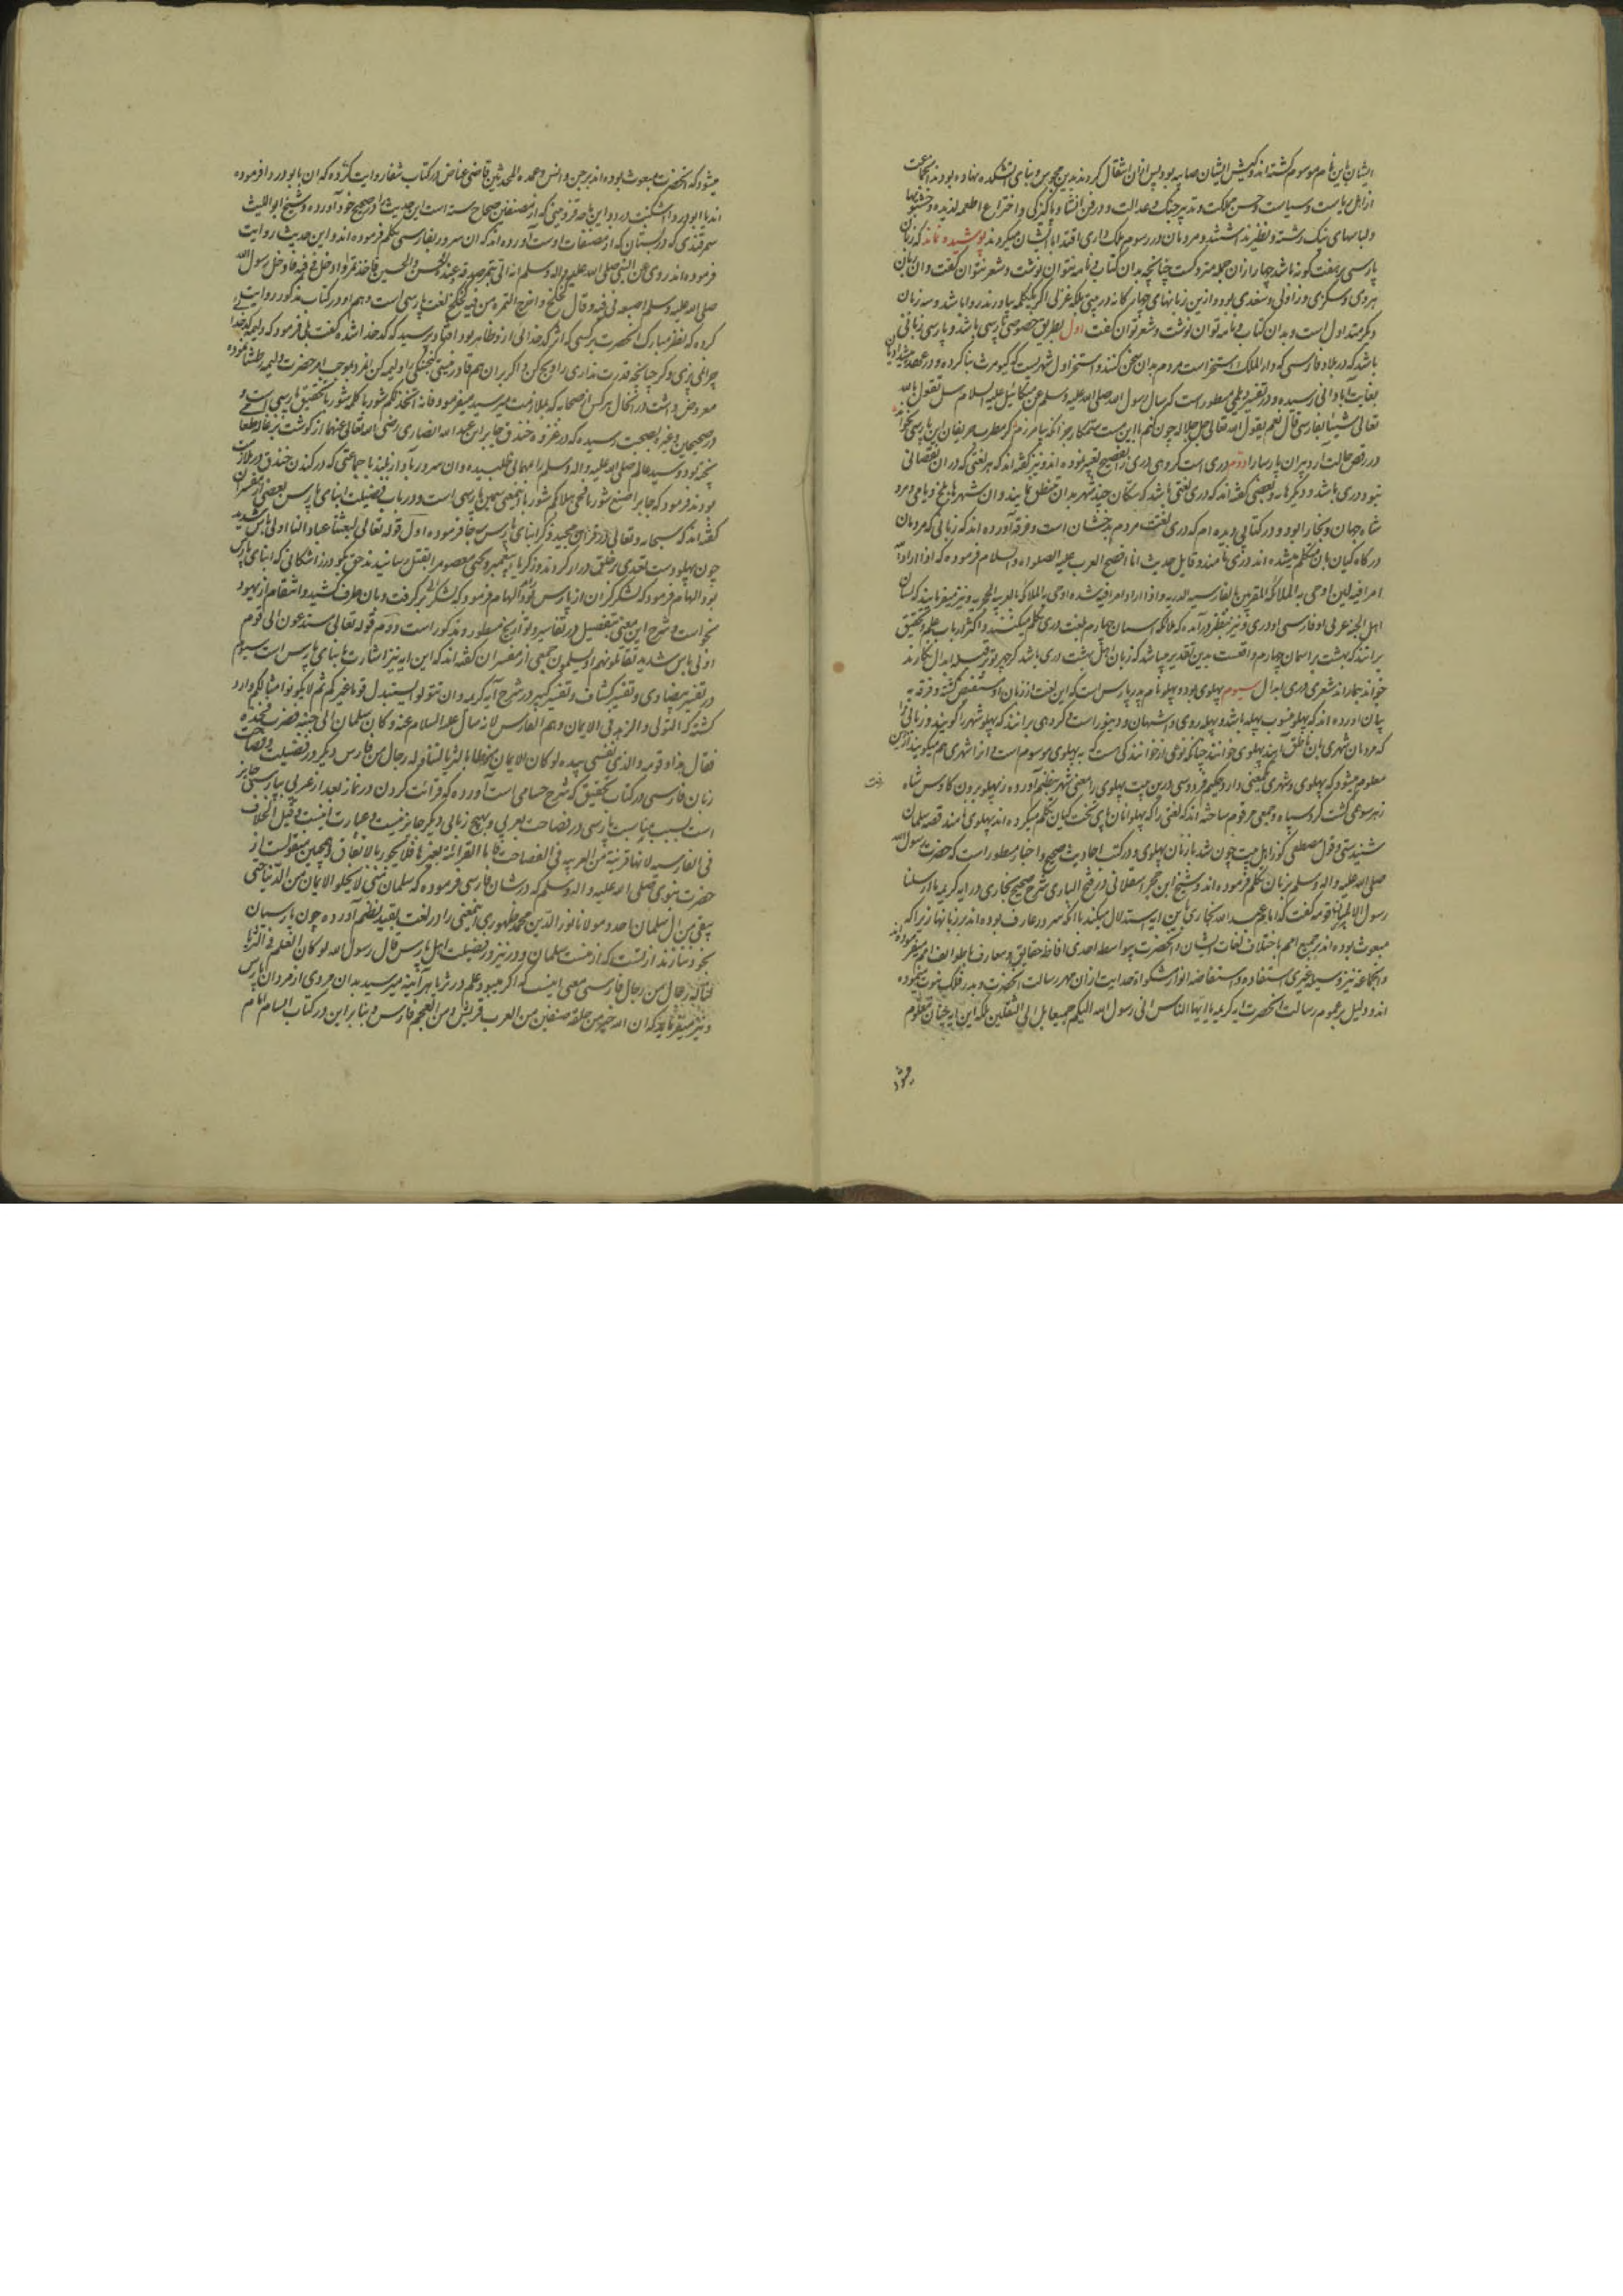 ایشان باین نام موسوم کشته اند و کیش ایشان صابیه بود پس ازان انتقال کردند بدین مجوس و بنای آتشکده نهاده بودند
از اهل ریاست و سیاست و حسن مملکت و تدبیر جنک و عدالت و در فن انشا و پاکیزکی و اختراع اطعمه لذیذه و خشبوها
و لباسهای نیک رشته و نظیر نداشتند و مردمان در رسوم ملک داری اقتدا بایشان میکردند پوشیده نماند که زبان
پارسی بر هفت کونه باشد چهار ازان جمله متروکست چنانچه بدان کتاب و نامه نتوان نوشت و شعر نتوان کفت و ان زبان
هروی و سکزی و زاولی و سغدی بود و ازین زبانهای چهارکانه در بیتی بلکه غزلی اکر یک کلمه بیاورند روا باشد و سه زبان
دیکر متداول است و بدان کتاب و نامه توان نوشت و شعر توان کفت اول بطریق خصوصی پارسی باشد و پارسی زبانی
باشد که در بلاد فارسی که دار الملک استخر است مردم بدان سخن کنند و استخر اول شهریست که کیومرث بنا کرده و در عهد
بغایت آبادانی رسیده و در تفسیر دیلمی مسطور است که سال رسول الله صلی الله علیه وسلم عن میکائیل علیه السلام هل یقول الله
تعالی شیئا بالفارسی قال نعم یقول الله تعالی جل جلاله چون کنم با این مشت ستمکار جز آنکه بیامرزم کر مطرب حریفان این پارسی بخواند
در رقص حالت آرد پیران پارسا را دوم دری است کروهی دری را بفصیح تعبیر نموده اند و نیز کفته اند که هر لغتی که در ان نقصانی
نبود دری باشد و دیکرها و بعضی کفته اند که دری لغتی باشد که سکان چند شهر بدان متنطق نمایند و ان شهرها بلخ و بامی و مرو
شاه جهان و بخارا بود و در کتابی دیده ام که دری لغت مردم بدخشان است و فرقه آورده اند که زبانی که مردمان
درکاه کیان بان متکلم میشده اند دری نامند و قایل حدیث انا افصح العرب علیه الصلواه والسلام فرموده که اذا اراد الله
امرا فیه لین اوحی به الی الملائکه المقربین بالفارسیه الدریه و اذا اراد امرا فیه شده اوحی بالملائکه بالعربیه الجهریه و نیز میفرمایند که لسان
اهل الجنه عربی او فارسی او دری و نیز بنظر درآمده که ملائکه اسمان چهارم بلغت دری تکلم میکنند و اکثر ارباب علم و تحقیق
برانند که بهشت بر اسمان چهارم واقعست بدین تقدیر میباشد که زبان اهل بهشت دری باشد
خواند بماراند شعری دری ابدال سیوم پهلوی بود و پهلو نام پدر پارس است که این لغت از زبان او مستفیض کشته و فرقه به
بیان آورده اند که پهلو منسوب بپهله باشد و پهله روی و سپاهان و دینور است و کروهی برانند که پهلو شهر را کویند و زبانی را
که مردمان شهری بان ناطق آیند پهلوی خوانند چنانکه نوعی از خوانندکی است که به پهلوی موسوم است و انرا شهری هم میکویند ازین
معلوم میشود که پهلوی و شهری یک معنی دارد و حکیم فردوسی درین بیت پهلوی را بمعنی شهر بنظم آورده ز پهلو برون رفت کاوس شاه
ز هر سو همی کشت کرد سپاه و جمعی مرقوم ساخته اند که لغتی را که پهلوانان پای تخت کیان تکلم میکرده اند پهلوی نامند قصه سلمان
شنیدستی و قول مصطفی کو ز اهل بیت چون شد با زبان پهلوی و در کتب احادیث صحیح و اخبار مسطور است که حضرت رسول الله
صلی الله علیه واله وسلم بزبان تکلم فرموده اند و شیخ ابن حجر عسقلانی در فتح الباری شرح صحیح بخاری در آیه کریمه ما ارسلنا
رسول الا بلسان قومه کفت که ابا عبد الله بخاری باین آیه استدلال میکند بانکه سرور عارف بوده اند بر زبانها زیرا که
مبعوث بوده اند بر جمیع امم باختلاف لغات ایشان و انحضرت بیواسطه احدی افاضه حقایق و معارف باطوایف امم میفرموده اند
و انجماعه نیز بی وسیله غیری استفاده و استفاضه انوار مشکواة هدایت ازان مهر رسالت انحضرت و بدر فلک نبوت مینموده
اند و دلیل بر عموم رسالت انحضرت آیه کریمه یا ایها الناس انی رسول الله الیکم جمیعا بل الی الثقلین بلکه این آیه چنان معلوم
میشود
میشود که انحضرت مبعوث بوده اند بر جن و انس و عمده المحدثین قاضی عیاض در کتاب شفا روایت کرده که ان بابودردا فرموده
اند یا ابودردا اشکنب درد و ابن ماجه قزوینی که از مصنفین صحاح سته است این حدیث را در صحیح خود آورده و شیخ ابو اللیث
سمرقندی که در بستان که از مصنفات اوست آورده اند که ان سرور بفارسی تکلم فرموده اند و این حدیث روایت
فرموده اند روی عن النبی صلی الله علیه واله وسلم انه اتی بتمر صدقه وعنده الحسن والحسین فاخذ تمرا وادخل فی فیه فادخل رسول الله
صلی الله علیه وسلم اصبعه فی فیه وقال کخ کخ واخرج التمره من فیه کخ کخ لغت پارسی است و هم او در کتاب مذکور روایت
کرده که نظر مبارک انحضرت بر کسی که اثر کدخدائی ازو ظاهر بود افتاد پرسید که کدخدا شده کفت بلی فرمود که ولیمه
معروض داشت در انحال هر کس از صحابه که بملازمت میرسید میفرمود فانه اتخذ لکم شوربا کلمه شوربا بتحقیق پارسی است و
در صحیحین و غیره بصحت رسیده که در غزوه خندق جابر ابن عبد الله انصاری رضی الله تعالی عنهما از کوشت بزغاله طعامی
پخته بود و سید عالم صلی الله علیه واله وسلم را بمهمانی طلبیده و ان سرور بآواز بلند با جماعتی که در کندن خندق در ملازمت
بودند فرمود که جابرا صنع شوربا فحی هلا بکم شوربا بمعنی سجین پارسی است و در باب فضیلت ابنای پارس بعضی از مفسران
کفته اند که سبحانه و تعالی در قران مجید ذکر ابنای پارس سه جا فرموده اول قوله تعالی بعثنا عبادا لنا اولی باس شدید
چون یهود دست تعدی بر خلق دراز کردند و زکریا پیغمبر و یحیی معصوم را بقتل رسانیدند حق بکودرز اشکانی که ابنای پارس
بود الهام فرمود که لشکر کران از پارس الهام فرمود که لشکر بر کرفت و بان طرف کشید و انتقام از یهود
بخواست و شرح این معنی بتفصیل در تفاسیر و تواریخ مسطور و مذکور است دوم قوله تعالی ستدعون الی قوم
اولی باس شدید تقاتلونهم او یسلمون جمعی از مفسران کفته اند که این آیه نیز اشارت بابنای پارس است سیوم
در تفسیر بیضاوی و تفسیر کشاف و تفسیر کبیر در شرح آیه کریمه وان تتولوا یستبدل قوما غیرکم ثم لا یکونوا امثالکم وارد
کشته که التولی و الزهد فی الایمان وهم الفارس لانه سال علیه السلام عنه وکان سلمان الی جنبه فضرب فخذه
فقال هذا وقومه والذی نفسی بیده لو کان الایمان منوطا بالثریا لتناوله رجال من فارس دیکر در فضیلت و فصاحت
زبان فارسی در کتاب تحقیق که شرح حسامی است آورده که قرائت کردن در نماز بعد از عربی بپارسی جایز
است بسبب مناسبت پارسی در فصاحت بعربی و بهیچ زبانی دیکر جایز نیست و عبارت اینست و قیل الخلاف
فی الفارسیه لانها قریبة من العربیه فی الفصاحت فاما القرائة بغیرها فلا یجوز بالاتفاق و همچنین منقولست از
حضرت نبوی صلی الله علیه واله وسلم که در شان فارسی فرموده که سلمان منی لا یخلو الایمان من الدنیا حتی
یبقی من آل سلمان احد و مولانا نورالدین محمد ظهوری اینمعنی را در لغت بقید نظم آورده چون پارسیان
بخود ننازند از تست که از تست سلمان و در نیز در فضیلت اهل پارس قال رسول الله لو کان العلم فی الثریا
لناله رجال من رجال فارس معنی اینست که اکر میبود علم در ثریا هر آینه میرسید بدان مردی از مردان پارس
و نیز میفرماید که ان الله خیر من خلقه صنفین من العرب قریش و من العجم فارس و بنا بر این در کتاب السام امام